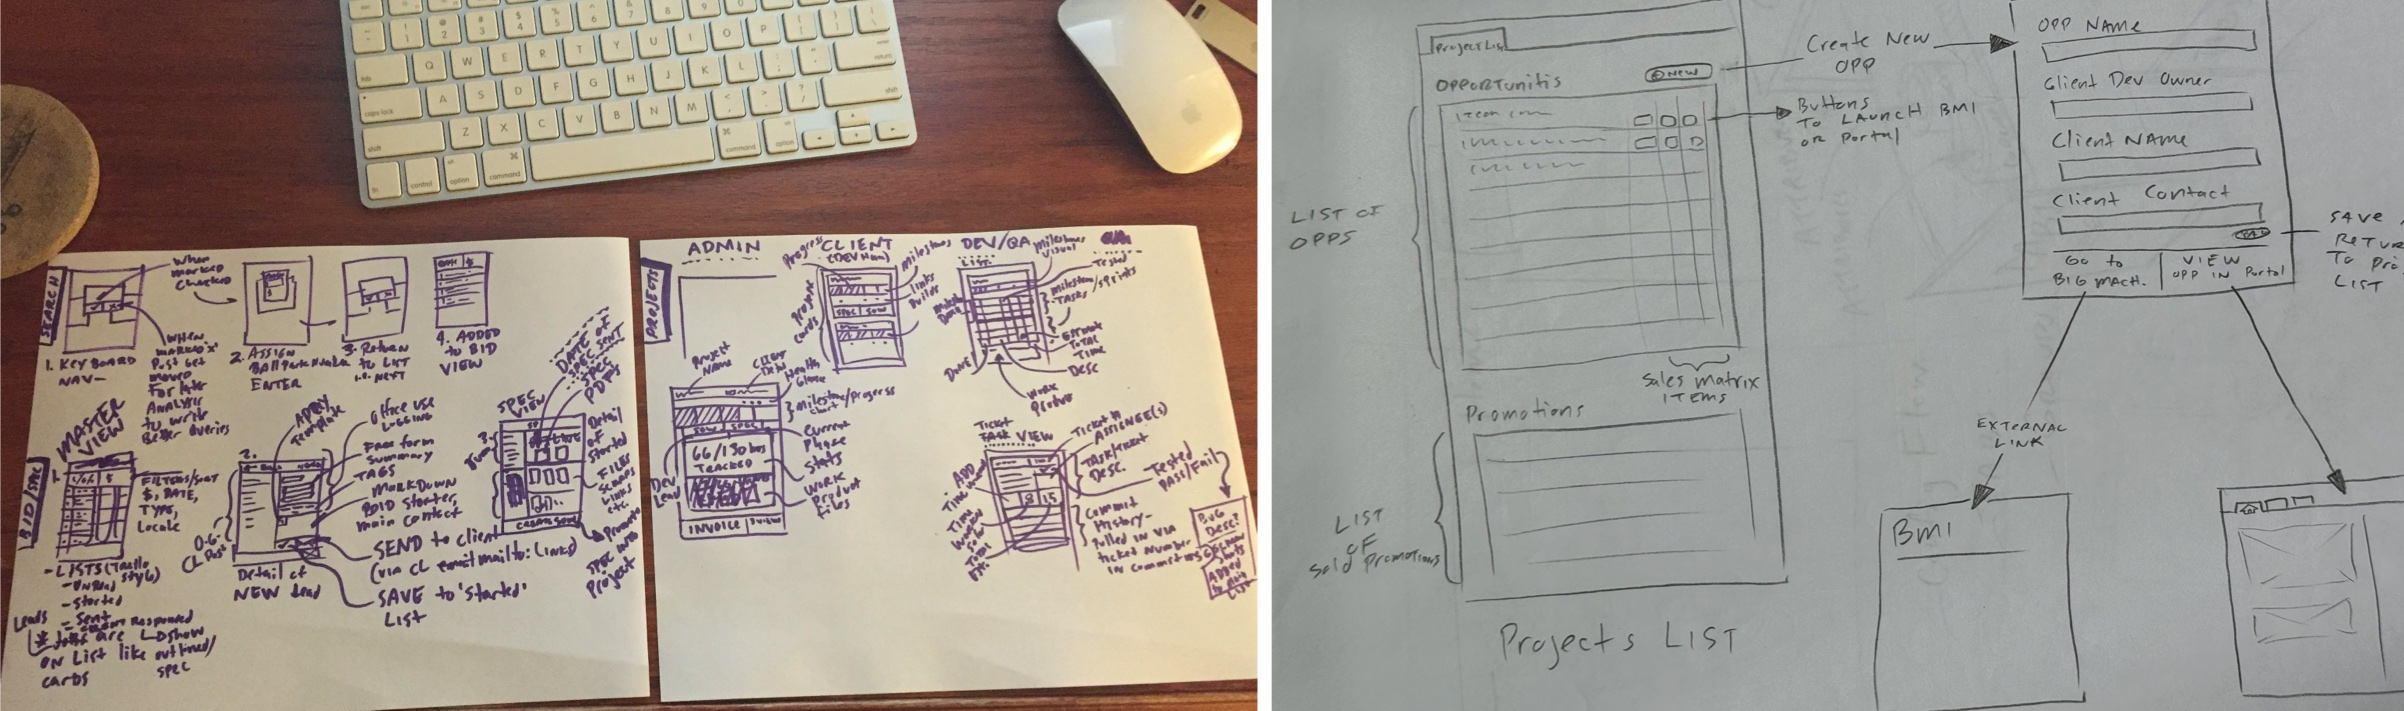 SEARCH
When
marked
Checked
1. KEYBOARD
NAV-
WHEN
marked 'x'
Post Get
moved
For later
ANALYSIS
to write
Better Queries
2. ASSIGN
Ballpark Number
ENTER
3. Return
to LIST
i.e. NEXT
4. ADDED
to BID
VIEW
BID/SPEC
MASTER
VIEW
1.
FILTERS/SORT
$, DATE,
TYPE,
Locale
-LISTS (Trello
style)
-Unread
-Started
-Sent
-Client Responded
Leads
are
show
ON List like outlined/
spec
cards
2.
APPLY
Template
Office use
Logging
Free form
Summary
TAGS
MARKDOWN
BID Starter,
main contact
SEND to client
(via CL email mailto: links)
SAVE to 'Started'
List
CL Post
Detail of
NEW Lead
SPEC
VIEW
3.
DATE of
SPEC SENT
SPEC
PDFs
Detail
of
Started
FILES
SCRAPS
LINKS
etc.
Promote
SPEC INTO
Project
PROJECTS
ADMIN
CLIENT
(DEV Hum)
Progress
milestones
links
Builds
SPEC
SOW
cards
DEV/QA
LIST.
Milestones
visual
Tested
Milestone/sprints
TASKS
Estimat
TOTAL
Time
DESC
Work
Product
DONE
Project
Name
CLIENT
Health
Glance
Milestone/progress
chart
SOW
SPEC
Current
Phase
Stats
66/130 hrs
Tracked
WORK
Product
Files
Dev
Lead
INVOICE
Ticket
TASK VIEW
Ticket #
ASSIGNEE(S)
Task/Ticket
DESC.
Tested
PASS/Fail
ADD
Time
8
15
Commit
History-
Pulled IN VIA
ticket Number
IN commit msg
BUG
Desc?
ADDED
List
Project List
OPPORTUNITIS
+ NEW
Create New
OPP
Item
Buttons
To LAUNCH BMI
or Portal
LIST OF
OPPS
Sales matrix
ITEMS
Promotions
LIST
OF
Sold Promotions
Projects LIST
OPP NAME
Client Dev Owner
Client NAME
Client Contact
SAVE
RETUR
TO Pro
LIST
Go to
BIG MACH.
VIEW
OPP IN Portal
EXTERNAL
LINK
BMI